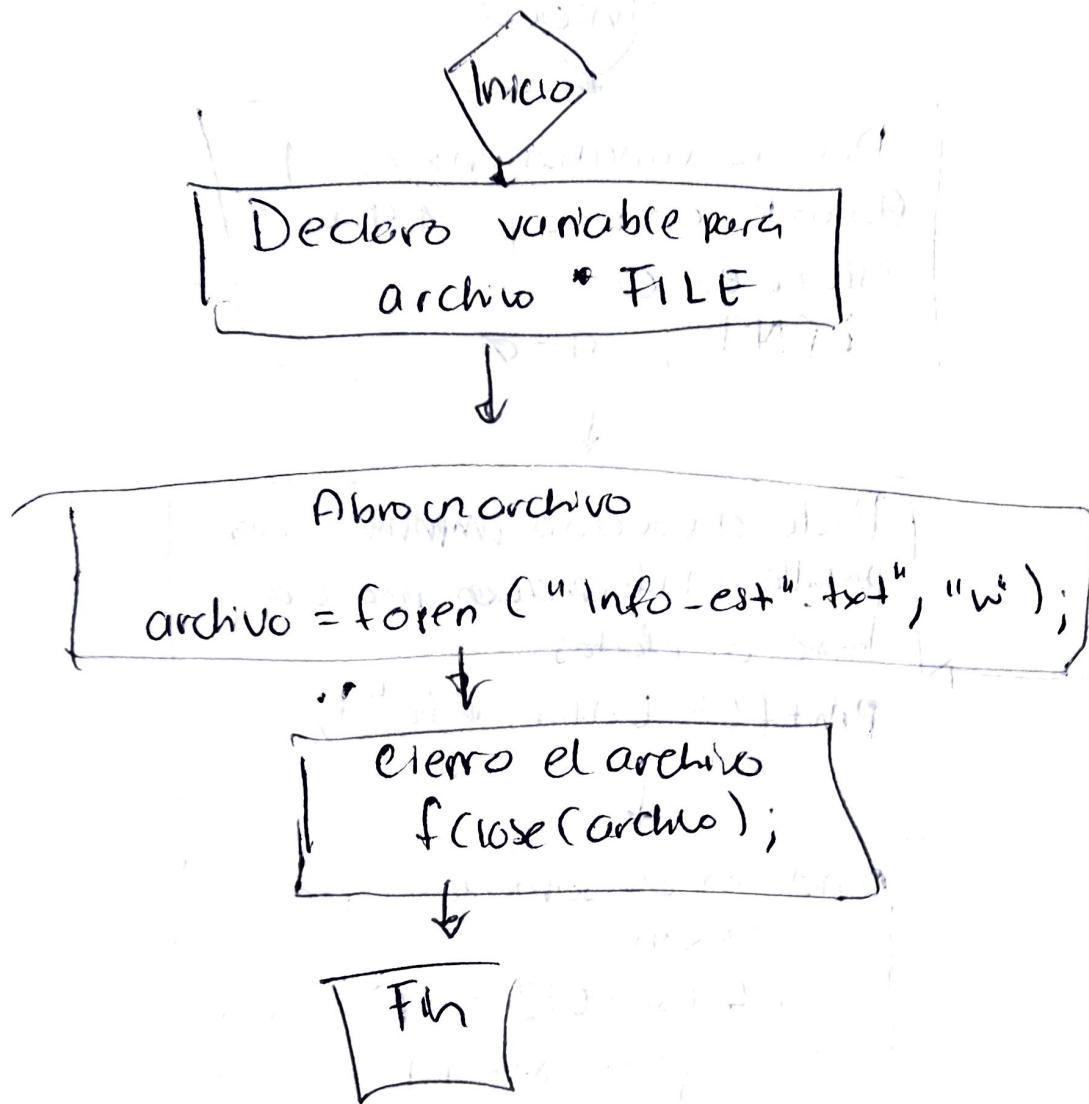 Inicio
Declaro variable para
archivo * FILE
Abro un archivo
archivo = fopen ("Info_est".txt", "w");
cierro el archivo
fclose(archivo);
Fin